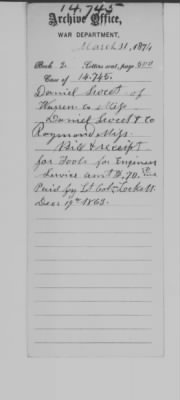 14,745
Archive Office,
WAR DEPARTMENT,
March 31, 1874
Book 2. Letters sent, page 500
Case of 14.745.
Daniel Sweet of
Warren Co Miss
Daniel Sweet & Co
Raymond Miss.
Bill & receipt
for Tools for Engineer
Service amt $,70.
Paid by Lt Col Lockett.
Decr 19th 1863.